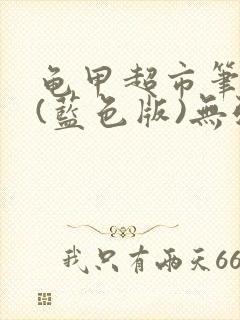 龟甲超市筆
(藍色版)無
我只有兩天66